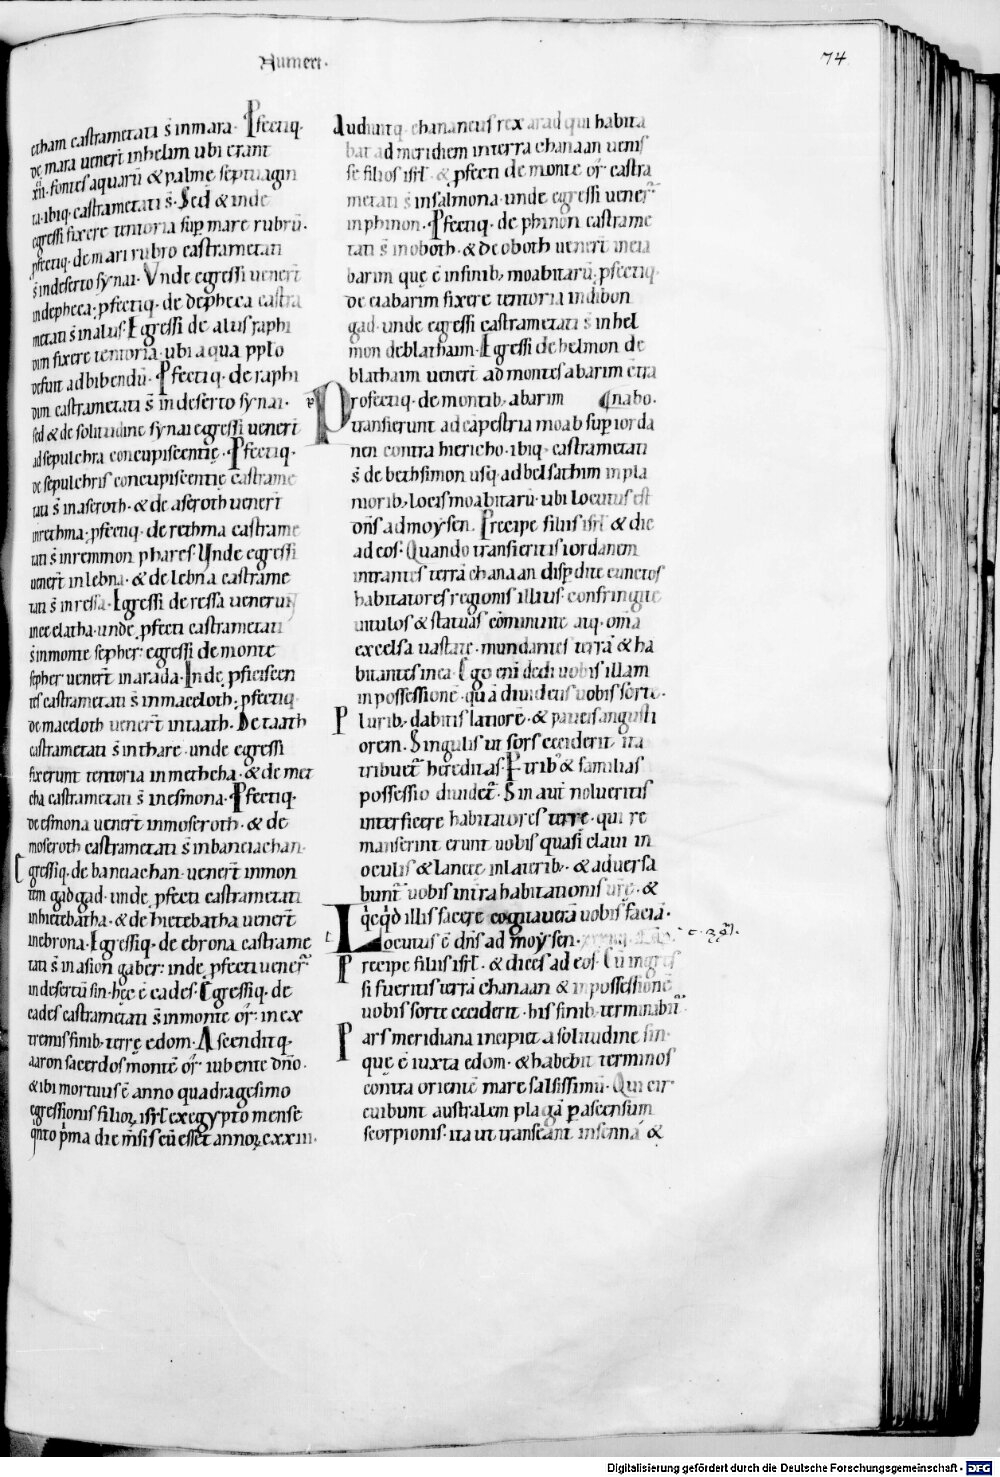 Numeri.
74
etham castrametati s̄ in mara. Pfectiq.
de mara uener̄t in helim ubi erant
xii. fontes aquarū & palme septuagin
ta. ibiq. castrametati s̄. Sed & inde
egressi fixere tentoria sup̱ mare rubrū.
pfectiq. de mari rubro castrametati
s̄ in deserto synai. Vnde egressi uener̄t
in depheca; pfectiq. de depheca castra
metati s̄ in alus. Egressi de alus raphi
dim fixere tentoria. ubi aqua pplo
defuit ad bibendū. Pfectiq. de raphi
dim castrametati s̄ in deserto synai.
sed & de solitudine synai egressi uener̄t
ad sepulchra concupiscentię. Pfectiq.
de sepulchris concupiscentie castrame
tati s̄ in aseroth. & de aseroth uener̄t
in rethma; pfectiq. de rethma castrame
tati s̄ in remmon phares. Vnde egressi
uener̄t in lebna. & de lebna castrame
tati s̄ in ressa. Egressi de ressa uenerunt
in ceelatha. unde pfecti castrametati
s̄ in monte sepher: egressi de monte
sepher uener̄t in arada. Inde pficiscen
tes castrametati s̄ in maceloth; pfectiq.
de maceloth uener̄t in taath. De taath
castrametati s̄ in thare. unde egressi
fixerunt tentoria in methcha. & de met
cha castrametati s̄ in esmona. Pfectiq.
de esmona uener̄t in moseroth. & de
moseroth castrametati s̄ in baneiachan.
Egressiq. de baneiachan uener̄t in mon
tem gadgad. unde pfecti castrametati
in hietebatha. & de hietebatha uener̄t
in ebrona. Egressiq. de ebrona castrame
tati s̄ in asion gaber: inde pfecti uener̄
in desertū sin. hęc ē cades. Egressiq. de
cades castrametati s̄ in monte or: in ex
tremis finib; terrę edom. Ascenditq.
aaron sacerdos montē or iubente dn̄o.
& ibi mortuus ē anno quadragesimo
egressionis filioꝝ isrl̄ ex egypto mense
qnto p̄ma die m̄sis cū esset annoꝝ cxxiii.
Audiuitq. chananeus rex arad qui habita
bat ad meridiem in terra chanaan uenis
se filios isrl̄. & pfecti de monte or castra
metati s̄ in salmona. unde egressi uener̄
in phinon. Pfectiq. de phinon castrame
tati s̄ in oboth. & de oboth uener̄t in eia
barim quę ē in finib; moabitarū; pfectiq.
de eiabarim fixere tentoria in dibon
gad. unde egressi castrametati s̄ in hel
mon deblathaim. Egressi de helmon de
blathaim uener̄t ad montes abarim c̄tra
Profectiq. de montib; abarim nabo.
transierunt ad cāpestria moab sup̱ iorda
nen contra hiericho. ibiq. castrametati
s̄ de bethsimon usq. ad belsathim in pla
niorib; locis moabitarū. ubi locutus est
dn̄s ad moysen. Precipe filiis isrl̄ & dic
ad eos. Quando transieritis iordanem
intrantes terrā chanaan disp̱dite cunctos
habitatores regionis illius. confringite
titulos & statuas cōminuite atq. om̄ia
excelsa uastate. mundantes terrā & ha
bitantes in ea. Ego eni dedi uobis illam
in possessionē. quā diuidetis uobis sorte.
Plurib; dabitis latiorē. & paucis angusti
orem. Singulis ut sors ceciderit ita
tribuet̄ hereditas. P trib; & familias
possessio diuidet̄. Sin aut nolueritis
interficere habitatores terrę. qui re
manserint erunt uobis quasi claui in
oculis & lanceę in laterib;. & aduersa
bunt̄ uobis in terra habitationis urę. &
qcqd illis facere cogitauerā uobis faciā.
Locutus ē dn̄s ad moysen. c. 34.
Precipe filiis isrl̄. & dices ad eos. Cū ingres
si fueritis terrā chanaan & in possessionē
uobis sorte ceciderit. his finib; terminabit̄.
Pars meridiana incipiet a solitudine sin.
quę ē iuxta edom. & habebit terminos
contra orientē mare salsissimū. Qui cir
cuibunt australem plagā p ascensum
scorpionis. ita ut transeant in senna &
Digitalisierung gefördert durch die Deutsche Forschungsgemeinschaft - DFG